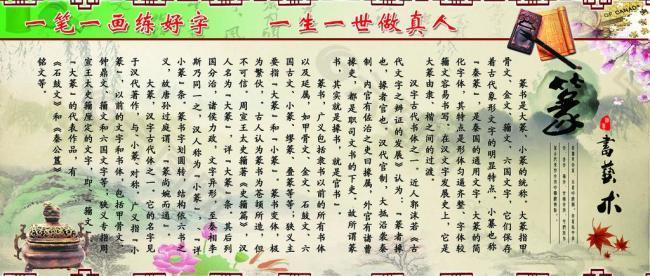 一笔一画练好字 一生一世做真人
篆
书艺术
篆书是大篆、小篆的统称。大篆指甲
骨文、金文、籀文、六国文字，它们保存
着古代象形文字的明显特点。小篆也称
“秦篆”，是秦国的通用文字，大篆的简
化字体，其特点是形体匀逼齐整、字体较
籀文容易书写。在汉文字发展史上，它是
大篆由隶、楷之间的过渡。
汉字古代书体之一。近人郭沫若《古
代文字之辨证的发展》认为：“篆者掾
也，掾者官也。汉代官制，大抵沿袭秦
制，内官有佐治之吏曰掾属，外官有诸曹
掾史，都是职司文书的下吏。故所谓篆
书，其实就是掾书，就是官书”。
篆书，广义包括隶书以前的所有书体
以及延属，如甲骨文、金文、石鼓文、六
国古文、小篆、缪篆、叠篆等等；狭义主
要指“大篆”和“小篆”。篆书变体，极
为繁伙，古人以为篆书为苍颉所造，但
不可信。周宣王太史籀著《史籀篇》，汉
人名为“大篆”，详“大篆”条。其后列
国分治，诸侯力政，文字异形，至秦相李
斯乃同一之，汉人称为“小篆”，详
“小篆”条。篆书字划圆转，结构依六书之
义，故唐孙过庭谓：“篆尚婉而通”。
大篆，汉字古代体之一，它的名字见
于汉代著作，与“小篆”对称。广义指“小
篆”以前的文字和书体，包括甲骨文、
钟鼎文、籀文和六国文字等；狭义专指周
宣王太史籀厘定的文字，即“籀文”。
“大篆”的代表作品，有
《石鼓文》和《秦公簋》
铭文等。